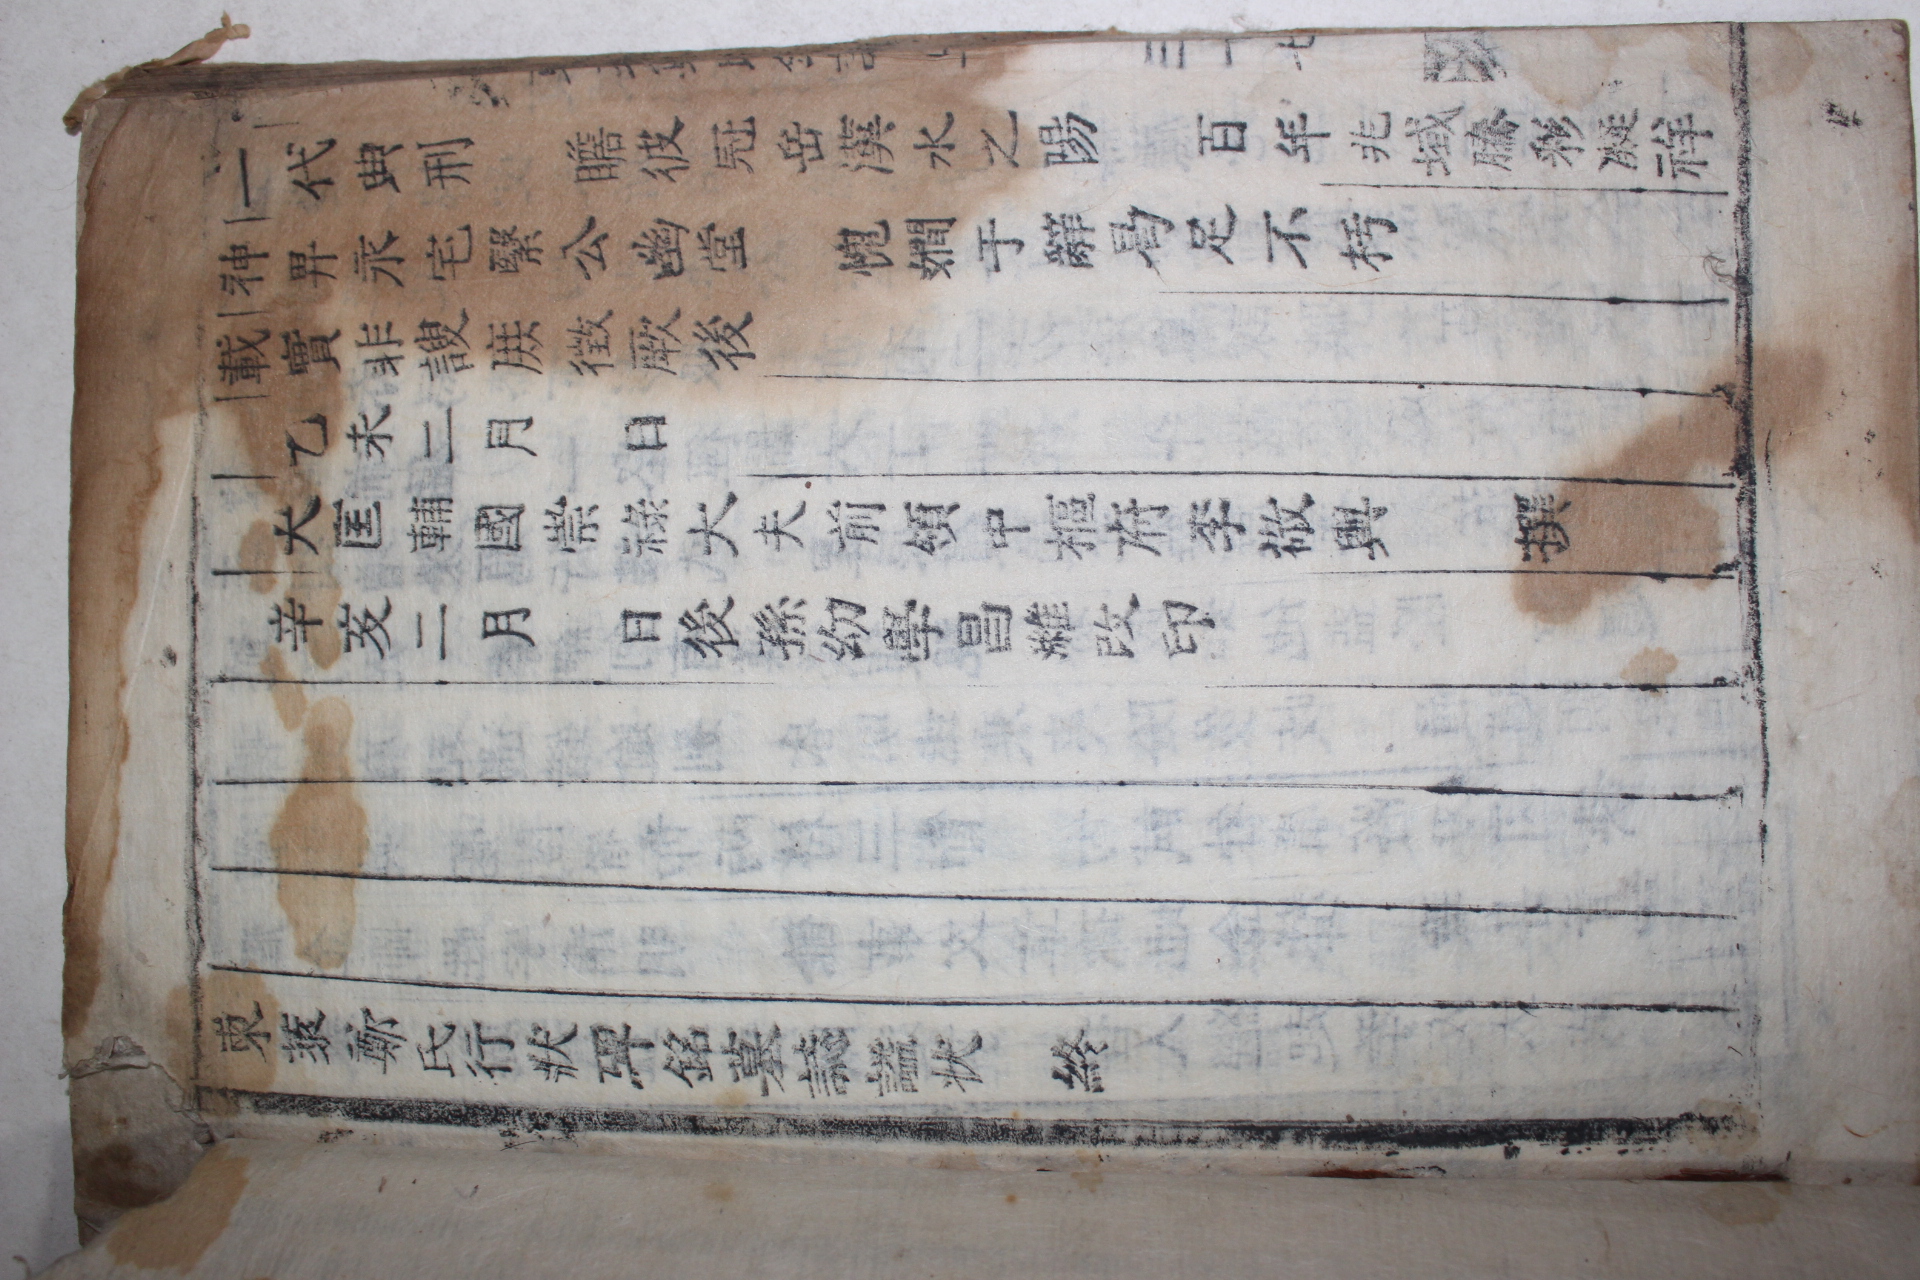 一代典刑 瞻彼冠岳漢水之陽 百年兆域騰彩凝祥
神畀永宅緊公幽堂 愧嫺于辭曷足不朽
載實非諛庶徵厥後
乙未二月 日
大匡輔國崇祿大夫前領中樞府李敬輿 撰
辛亥二月 日後孫幼學昌雖改印
東萊鄭氏行狀碑銘墓誌謚狀 終
三十七